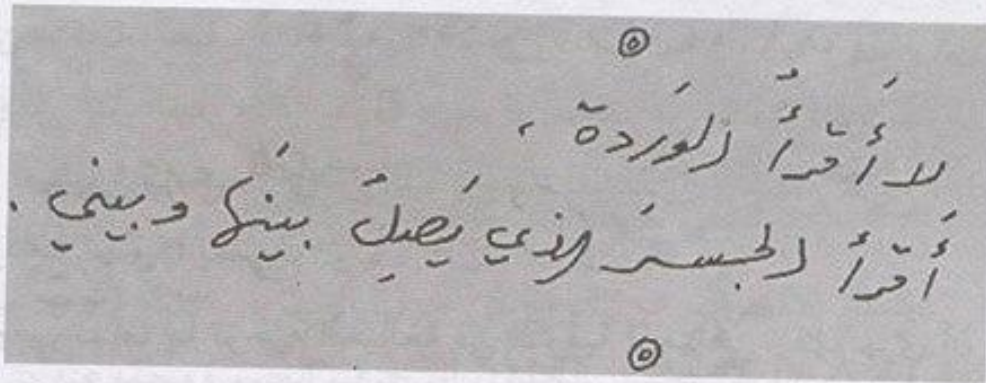 لا أَقرأُ الوَردة ،
أَقرأُ الجسسرَ الذي يَصِلُ بينَها وبيني .